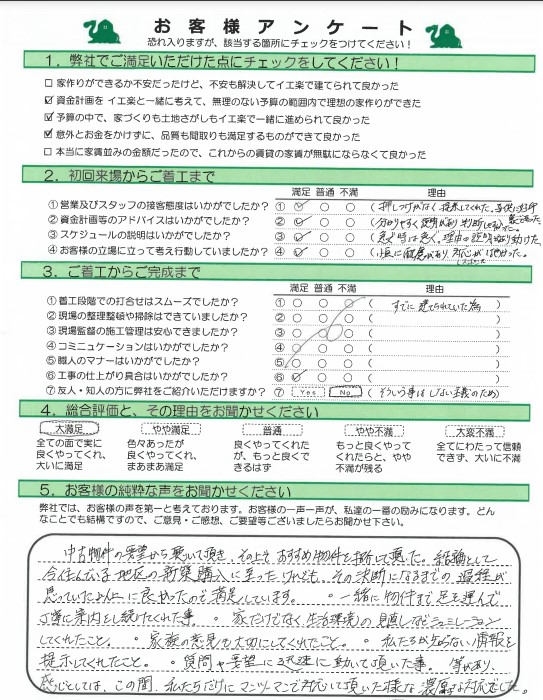 お客様アンケート
恐れ入りますが、該当する箇所にチェックをつけてください!
1. 弊社でご満足いただけた点にチェックをしてください!
□ 家作りができるか不安だったけど、不安も解決してイエ楽で建てられて良かった
☑ 資金計画を イエ楽と一緒に考えて、無理のない予算の範囲内で理想の家作りができた
☑ 予算の中で、家づくりも土地さがしもイエ楽で一緒に進められて良かった
☑ 意外とお金をかけずに、品質も間取りも満足するものができて良かった
□ 本当に家賃並みの金額だったので、これからの賃貸の家賃が無駄にならなくて良かった
2. 初回来場からご着工まで
満足 普通 不満 理由
①営業及びスタッフの接客態度はいかがでしたか? ① (押しつけがなく提案してくれた。
②資金計画等のアドバイスはいかがでしたか? ② (分かりやすく説明があり判断
③スケジュールの説明はいかがでしたか? ③ (急ぐ時は急ぐ。理由の説明もあり動けた
④お客様の立場に立って考え行動していましたか? ④ (
3. ご着工からご完成まで
満足 普通 不満 理由
①着工段階での打合せはスムーズでしたか? ① ( すでに建てられていた為 )
②現場の整理整頓や掃除はできていましたか? ② ( )
③現場監督の施工管理は安心できましたか? ③ ( )
④コミニュケーションはいかがでしたか? ④ ( )
⑤職人のマナーはいかがでしたか? ⑤ ( )
⑥工事の仕上がり具合はいかがでしたか? ⑥ ( )
⑦友人・知人の方に弊社をご紹介いただけますか? ⑦ Yes No (そういう事はしない主義のため)
4. 総合評価と、その理由をお聞かせください
大満足 やや満足 普通 やや不満 大変不満
全ての面で実に 色々あったが 良くやってくれた もっと良くやって 全てにわたって信頼
良くやってくれ、 良くやってくれ、 が、もっと良くで くれたらと、やや できず、大いに不満
大いに満足 まあまあ満足 きるはず 不満が残る
5. お客様の純粋な声をお聞かせください
弊社では、お客様の声を第一と考えております。お客様の一声一声が、私達の一番の励みになります。どん
なことでも結構ですので、ご意見・ご感想、ご要望等ございましたらお聞かせ下さい。
中古物件の提案から乗って頂き、その上で おすすめ物件を指示して頂いた。結論として
今住んでいる地区の新築購入に至ったけれども、その決断になるまでの過程が
思っていた以上に良かったので満足しています。 ・一緒に物件まで足を運んで
丁寧に案内を続けてくれた事 ・家だけでなく生活環境の見直しなどシュミレーション
してくれたこと。 ・家族の意見を大切にしてくれたこと。 ・私たちが知らない情報を
提示してくれたこと。 ・質問や要望に迅速に動いて頂いた事。 等があり、
感じとしては、この間、私たちだけにマンツーマンで対応して頂いた様な濃厚な対応でした。